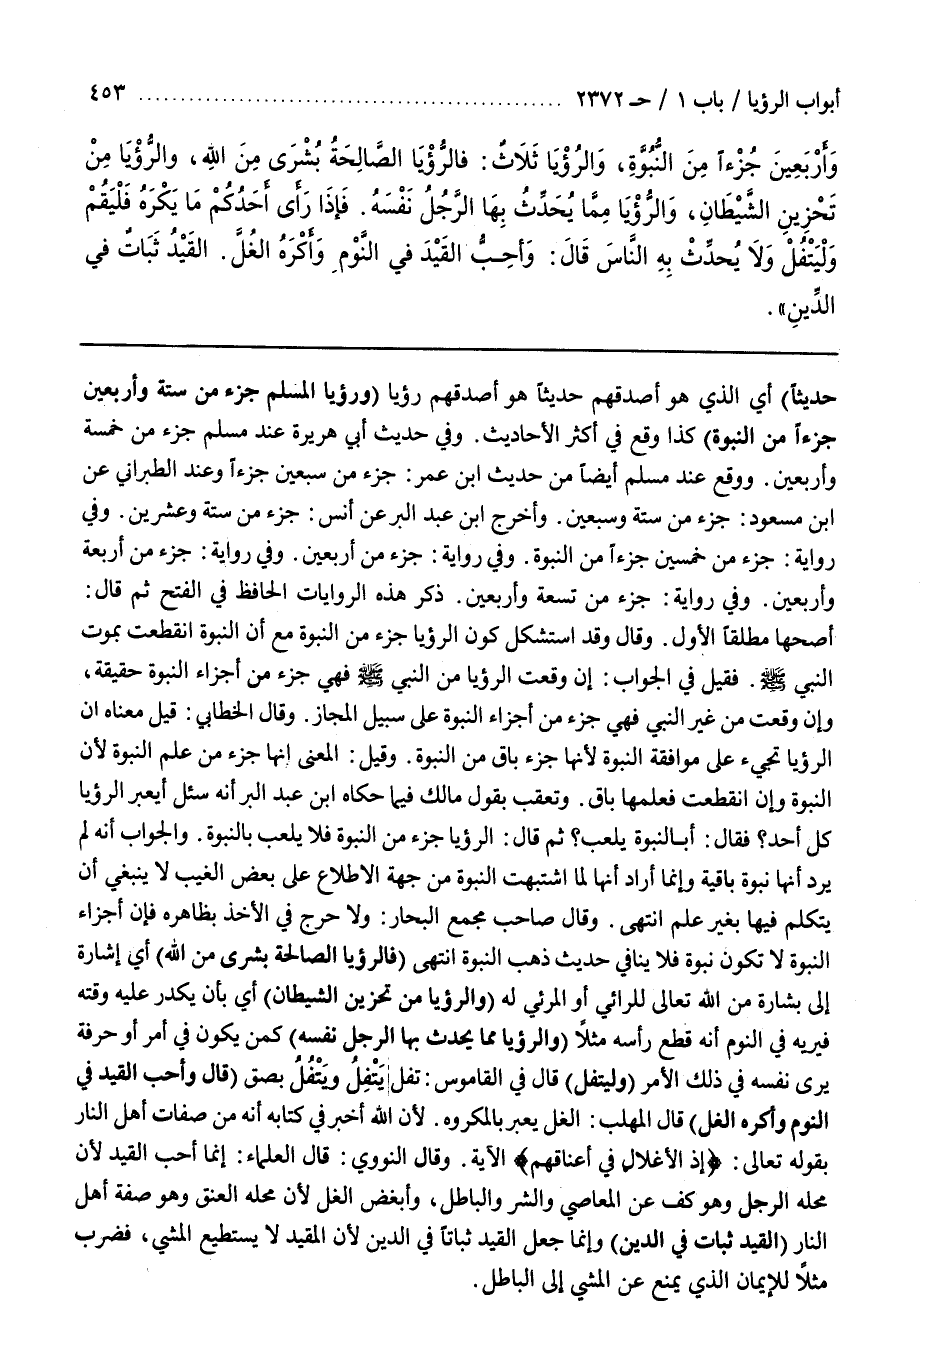 أبواب الرؤيا / باب ١ / حـ ٢٣٧٢ ........................................ ٤٥٣
وَأَرْبَعِينَ جُزْءاً مِنَ النُّبُوَّةِ، وَالرُّؤْيَا ثَلَاثٌ: فالرُّؤْيَا الصَّالِحَةُ بُشْرَى مِنَ اللهِ، والرُّؤْيَا مِنْ
تَحْزِينِ الشَّيْطَانِ، وَالرُّؤْيَا مِمَّا يُحَدِّثُ بِهَا الرَّجُلُ نَفْسَهُ. فَإِذَا رَأَى أَحَدُكُمْ مَا يَكْرَهُ فَلْيَقُمْ
وَلْيَتْفُلْ وَلَا يُحدِّثْ بِهِ النَّاسَ قَالَ: وَأحِبُّ القَيْدَ في النَّوْمِ وَأَكْرَهُ الغُلَّ. القَيْدُ ثَبَاتٌ في
الدِّينِ».
حديثاً) أي الذي هو أصدقهم حديثاً هو أصدقهم رؤيا (ورؤيا المسلم جزء من ستة وأربعين
جزءاً من النبوة) كذا وقع في أكثر الأحاديث. وفي حديث أبي هريرة عند مسلم جزء من خمسة
وأربعين. ووقع عند مسلم أيضاً من حديث ابن عمر: جزء من سبعين جزءاً وعند الطبراني عن
ابن مسعود: جزء من ستة وسبعين. وأخرج ابن عبد البر عن أنس: جزء من ستة وعشرين. وفي
رواية: جزء من خمسين جزءاً من النبوة. وفي رواية: جزء من أربعين. وفي رواية: جزء من أربعة
وأربعين. وفي رواية: جزء من تسعة وأربعين. ذكر هذه الروايات الحافظ في الفتح ثم قال:
أصحها مطلقاً الأول. وقال وقد استشكل كون الرؤيا جزء من النبوة مع أن النبوة انقطعت بموت
النبي ﷺ. فقيل في الجواب: إن وقعت الرؤيا من النبي ﷺ فهي جزء من أجزاء النبوة حقيقة،
وإن وقعت من غير النبي فهي جزء من أجزاء النبوة على سبيل المجاز. وقال الخطابي: قيل معناه ان
الرؤيا تجيء على موافقة النبوة لأنها جزء باق من النبوة. وقيل: المعنى إنها جزء من علم النبوة لأن
النبوة وإن انقطعت فعلمها باق. وتعقب بقول مالك فيما حكاه ابن عبد البر أنه سئل أيعبر الرؤيا
كل أحد؟ فقال: أبـالنبوة يلعب؟ ثم قال: الرؤيا جزء من النبوة فلا يلعب بالنبوة. والجواب أنه لم
يرد أنها نبوة باقية وإنما أراد أنها لما اشتبهت النبوة من جهة الاطلاع على بعض الغيب لا ينبغي أن
يتكلم فيها بغير علم انتهى. وقال صاحب مجمع البحار: ولا حرج في الأخذ بظاهره فإن أجزاء
النبوة لا تكون نبوة فلا ينافي حديث ذهب النبوة انتهى (فالرؤيا الصالحة بشرى من الله) أي إشارة
إلى بشارة من الله تعالى للرائي أو المرئي له (والرؤيا من تحزين الشيطان) أي بأن يكدر عليه وقته
فيريه في النوم أنه قطع رأسه مثلًا (والرؤيا مما يحدث بها الرجل نفسه) كمن يكون في أمر أو حرفة
يرى نفسه في ذلك الأمر (وليتفل) قال في القاموس: تفل يَتْفِلُ ويَتْفُلُ بصق (قال وأحب القيد في
النوم وأكره الغل) قال المهلب: الغل يعبر بالمكروه. لأن الله أخبر في كتابه أنه من صفات أهل النار
بقوله تعالى: ﴿إذ الأغلال في أعناقهم﴾ الآية. وقال النووي: قال العلماء: إنما أحب القيد لأن
محله الرجل وهو كف عن المعاصي والشر والباطل، وأبغض الغل لأن محله العنق وهو صفة أهل
النار (القيد ثبات في الدين) وإنما جعل القيد ثباتاً في الدين لأن المقيد لا يستطيع المشي، فضرب
مثلًا للإيمان الذي يمنع عن المشي إلى الباطل.